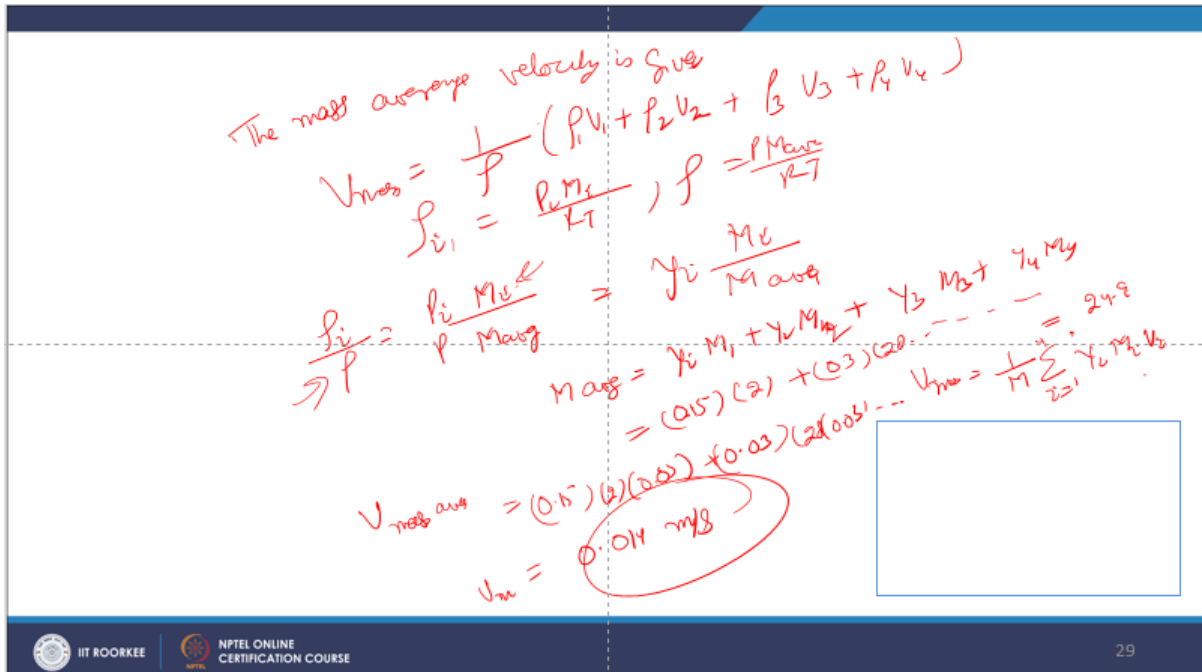 The mass average velocity is give
V_mass = 1/ρ (ρ₁V₁ + ρ₂V₂ + ρ₃ V₃ + ρ₄ V₄)
ρᵢ, = Pᵢ Mᵢ / RT , ρ = P Mavg / RT
ρᵢ/ρ = Pᵢ Mᵢ / P Mavg = yᵢ Mᵢ / M avg
M avg = yᵢ M₁ + y₂ M₂ + y₃ M₃ + y₄ M₄
= (0.15) (2) + (0.3) (28. - - - - - = 24.9
V = 1/M Σ i=1 4 yᵢ Mᵢ Vᵢ
V mass avg = (0.15) (2) (0.05) + (0.03) (28) (0.03) ...
Vm = 0.014 m/s
IIT ROORKEE
NPTEL ONLINE
CERTIFICATION COURSE
29